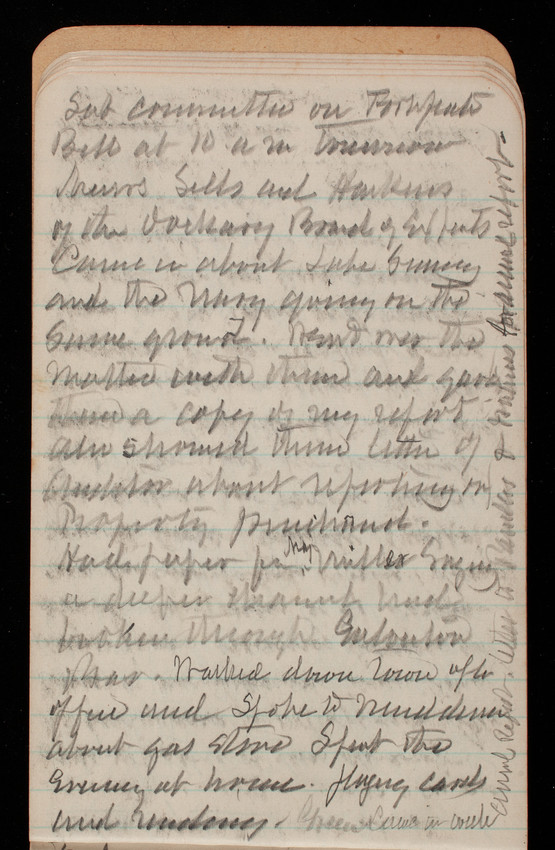 Sub committee on Fortification
Bill at 10 a m tomorrow
Messrs Sells and Harkins
of the Dockery Board of Experts
Came in about Lake Survey
and the Navy going on the
same ground. Went over the
matter with them and gave
them a copy of my report
also showed them letter of
Auditor about reporting on
Property purchased.
Had paper for Maj Miller Saying
a deeper channel had
broken through Galveston
bar. Walked down town after
office and spoke to
about gas stove Spent the
Evening at home. playing cards
and reading. Came in while
annual report. letter to & for annual report